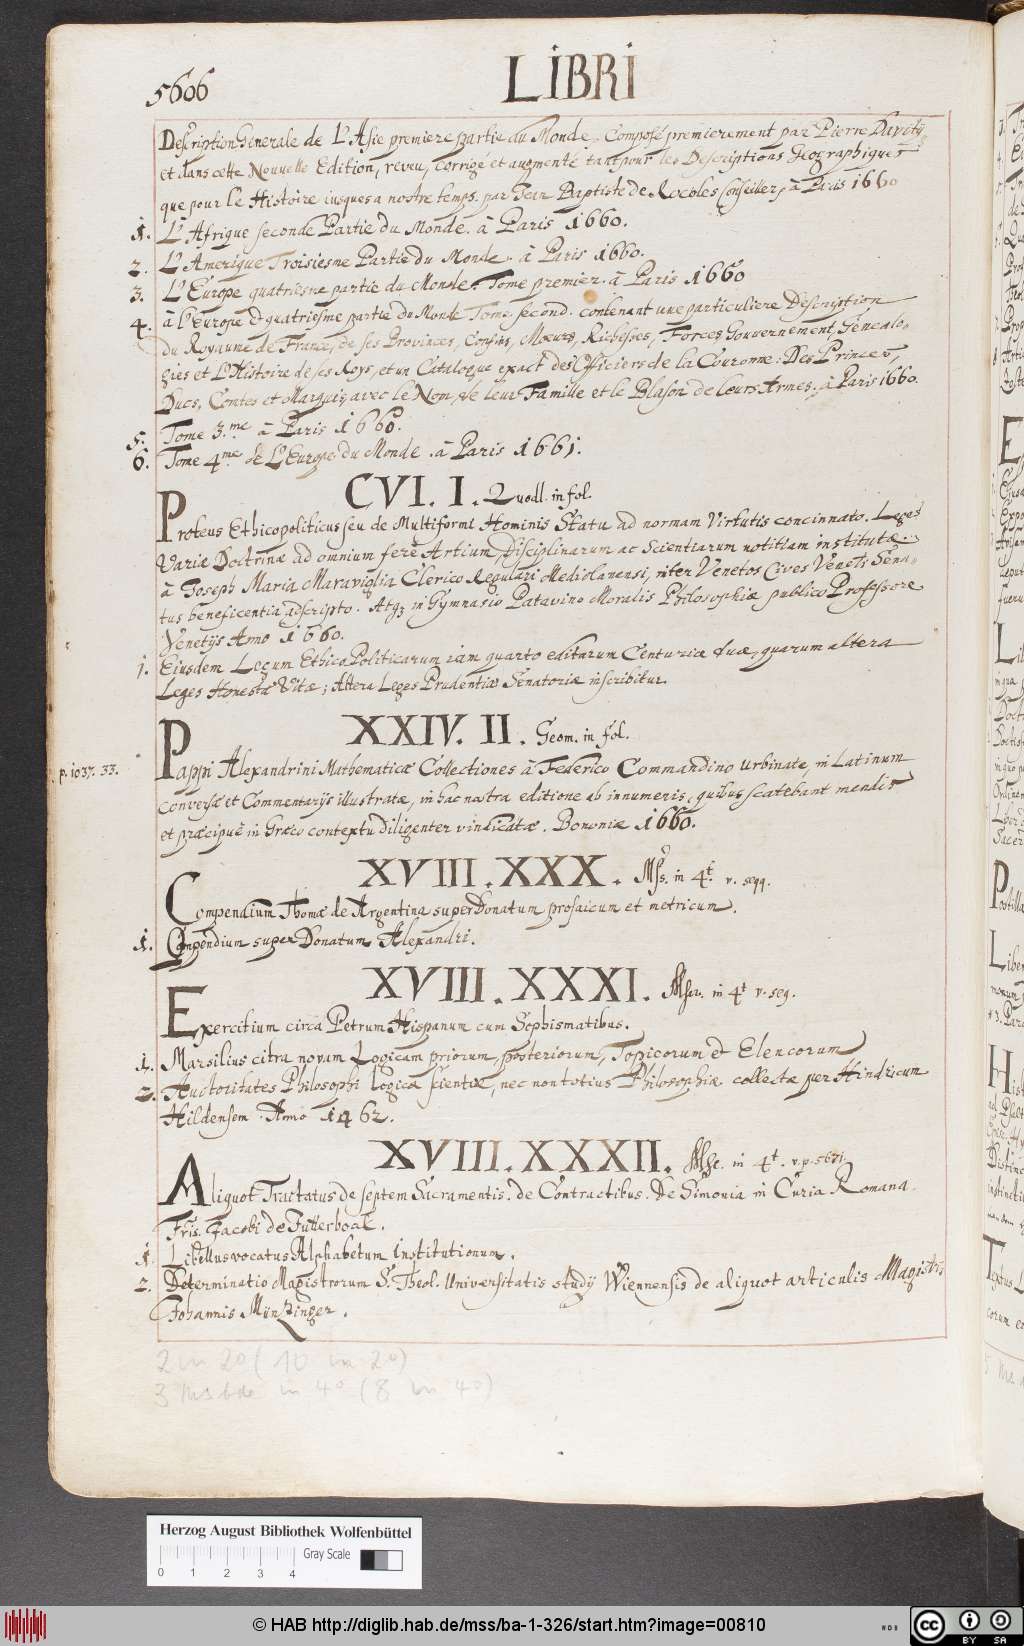 5606
LIBRI
Description Generale de L'Asie premiere partie du Monde. Composé premierement par Pierre Davity,
et dans cette Nouvelle Edition, reveu, corrigé et augmenté tant pour les Descriptions Geographiques
que pour le Histoire iusques a nostre temps. par Jean Baptiste de Rocoles Conseiller, à Paris 1660
1. L'Afrique seconde Partie du Monde. à Paris 1660.
2. L'Amerique Troisiesme Partie du Monde. à Paris 1660.
3. L'Europe quatriesme partie du Monde. Tome premier. à Paris 1660
4. à l'Europe quatriesme partie du Monde Tome second. contenant une particuliere Description
du Royaume de France, de ses Provinces, Confins, Mœurs, Richesses, Forces Gouvernement Genealo-
gies et L'Histoire de ses Roys, et un Catalogue exact des Officiers de la Couronne: Des Princes,
Ducs, Comtes et Marquis, avec le Nom de leur Famille et le Blason de leurs Armes. à Paris 1660.
5. Tome 3.me à Paris 1660.
6. Tome 4.me de L'Europe du Monde. à Paris 1661.
CVI. I. Quodl. in fol.
Proteus Ethicopoliticus seu de Multiformi Hominis Statu ad normam Virtutis concinnato. Leges
Variæ Doctrinæ ad omnium ferè Artium, Disciplinarum ac Scientiarum notitiam institutæ.
à Joseph Maria Maraviglia Clerico Regulari Mediolanensi, inter Venetos Cives Veneti Sena-
tus beneficentia adscripto. Atq3 in Gymnasio Patavino Moralis Philosophiæ publico Professore
Venetijs Anno 1660.
1. Eiusdem Legum Ethico Politicarum iam quarto editarum Centuriæ duæ, quarum altera
Leges Honestæ Vitæ; Altera Leges Prudentiæ Senatoriæ inscribitur.
XXIV. II. Geom. in fol.
p. 1037. 33.
Pappi Alexandrini Mathematicæ Collectiones à Federico Commandino Urbinate, in Latinum
conversæ et Commentarijs illustratæ, in hac nostra editione ab innumeris, quibus scatebant mendis
et præcipuè in Græco contextu diligenter vindicatæ. Bononiæ 1660.
XVIII. XXX. Mss. in 4t. v. seqq.
Compendium Thomæ de Argentina super Donatum prosaicum et metricum.
1. Compendium super Donatum Alexandri.
XVIII. XXXI. Mscr. in 4t v. seq.
Exercitium circa Petrum Hispanum cum Sophismatibus.
1. Marsilius citra novam Logicam priorum, posteriorum, Topicorum et Elencorum
2. Auctoritates Philosophi logicæ scientiæ, nec non totius Philosophiæ collectæ per Hindricum
Hildensem. Anno 1462.
XVIII. XXXII. Msc. in 4t. v. p. 5671.
Aliquot Tractatus de septem Sacramentis. de Contractibus. De Simonia in Curia Romana.
Fris. Jacobi de Jutterboal.
1. Libellus vocatus Alphabetum Institutionum.
2. Determinatio Magistrorum S. Theol. Universitatis studij Wiennensis de aliquot articulis Magistri
Johannis Müntzinger.
2 in 2° (10 in 2°)
3 Msbde in 4° (8 in 4°)
Herzog August Bibliothek Wolfenbüttel
Gray Scale
0 1 2 3 4
© HAB http://diglib.hab.de/mss/ba-1-326/start.htm?image=00810
cc BY SA